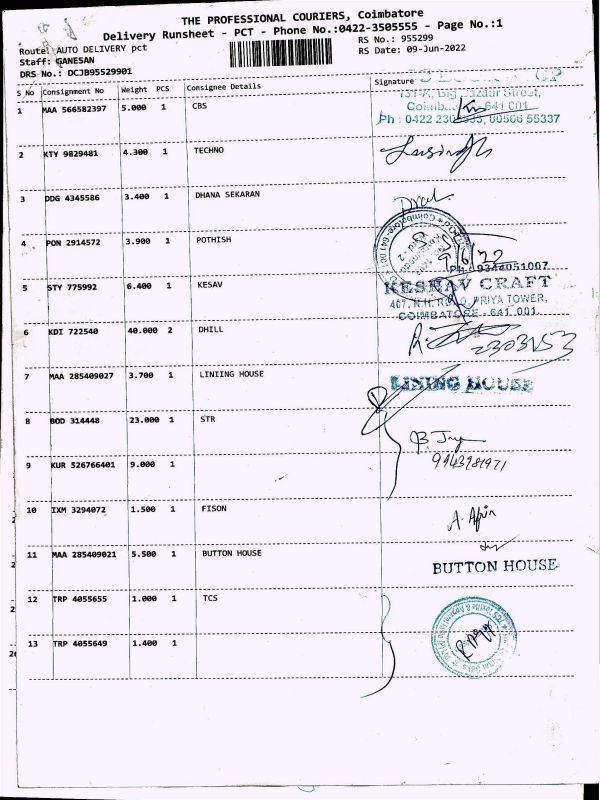 THE PROFESSIONAL COURIERS, Coimbatore
Delivery Runsheet - PCT - Phone No.:0422-3505555 - Page No.:1
Route: AUTO DELIVERY pct RS No.: 955299
Staff: GANESAN RS Date: 09-Jun-2022
DRS No.: DCJB95529901
S No Consignment No Weight PCS Consignee Details Signature
1 MAA 566582397 5.000 1 CBS
641 001
2 KTY 9829481 4.300 1 TECHNO
3 DDG 4345586 3.400 1 DHANA SEKARAN
4 PON 2914572 3.900 1 POTHISH
9/6/22
Ph : 9344051007
5 STY 775992 6.400 1 KESAV KESHAV CRAFT
PRIYA TOWER,
COIMBATORE - 641 001
6 KDI 722540 40.000 2 DHILL
7 MAA 285409027 3.700 1 LINIING HOUSE LINING HOUSE
8 BOD 314448 23.000 1 STR
9 KUR 526766401 9.000 1
10 IXM 3294072 1.500 1 FISON
11 MAA 285409021 5.500 1 BUTTON HOUSE BUTTON HOUSE
12 TRP 4055655 1.000 1 TCS
13 TRP 4055649 1.400 1